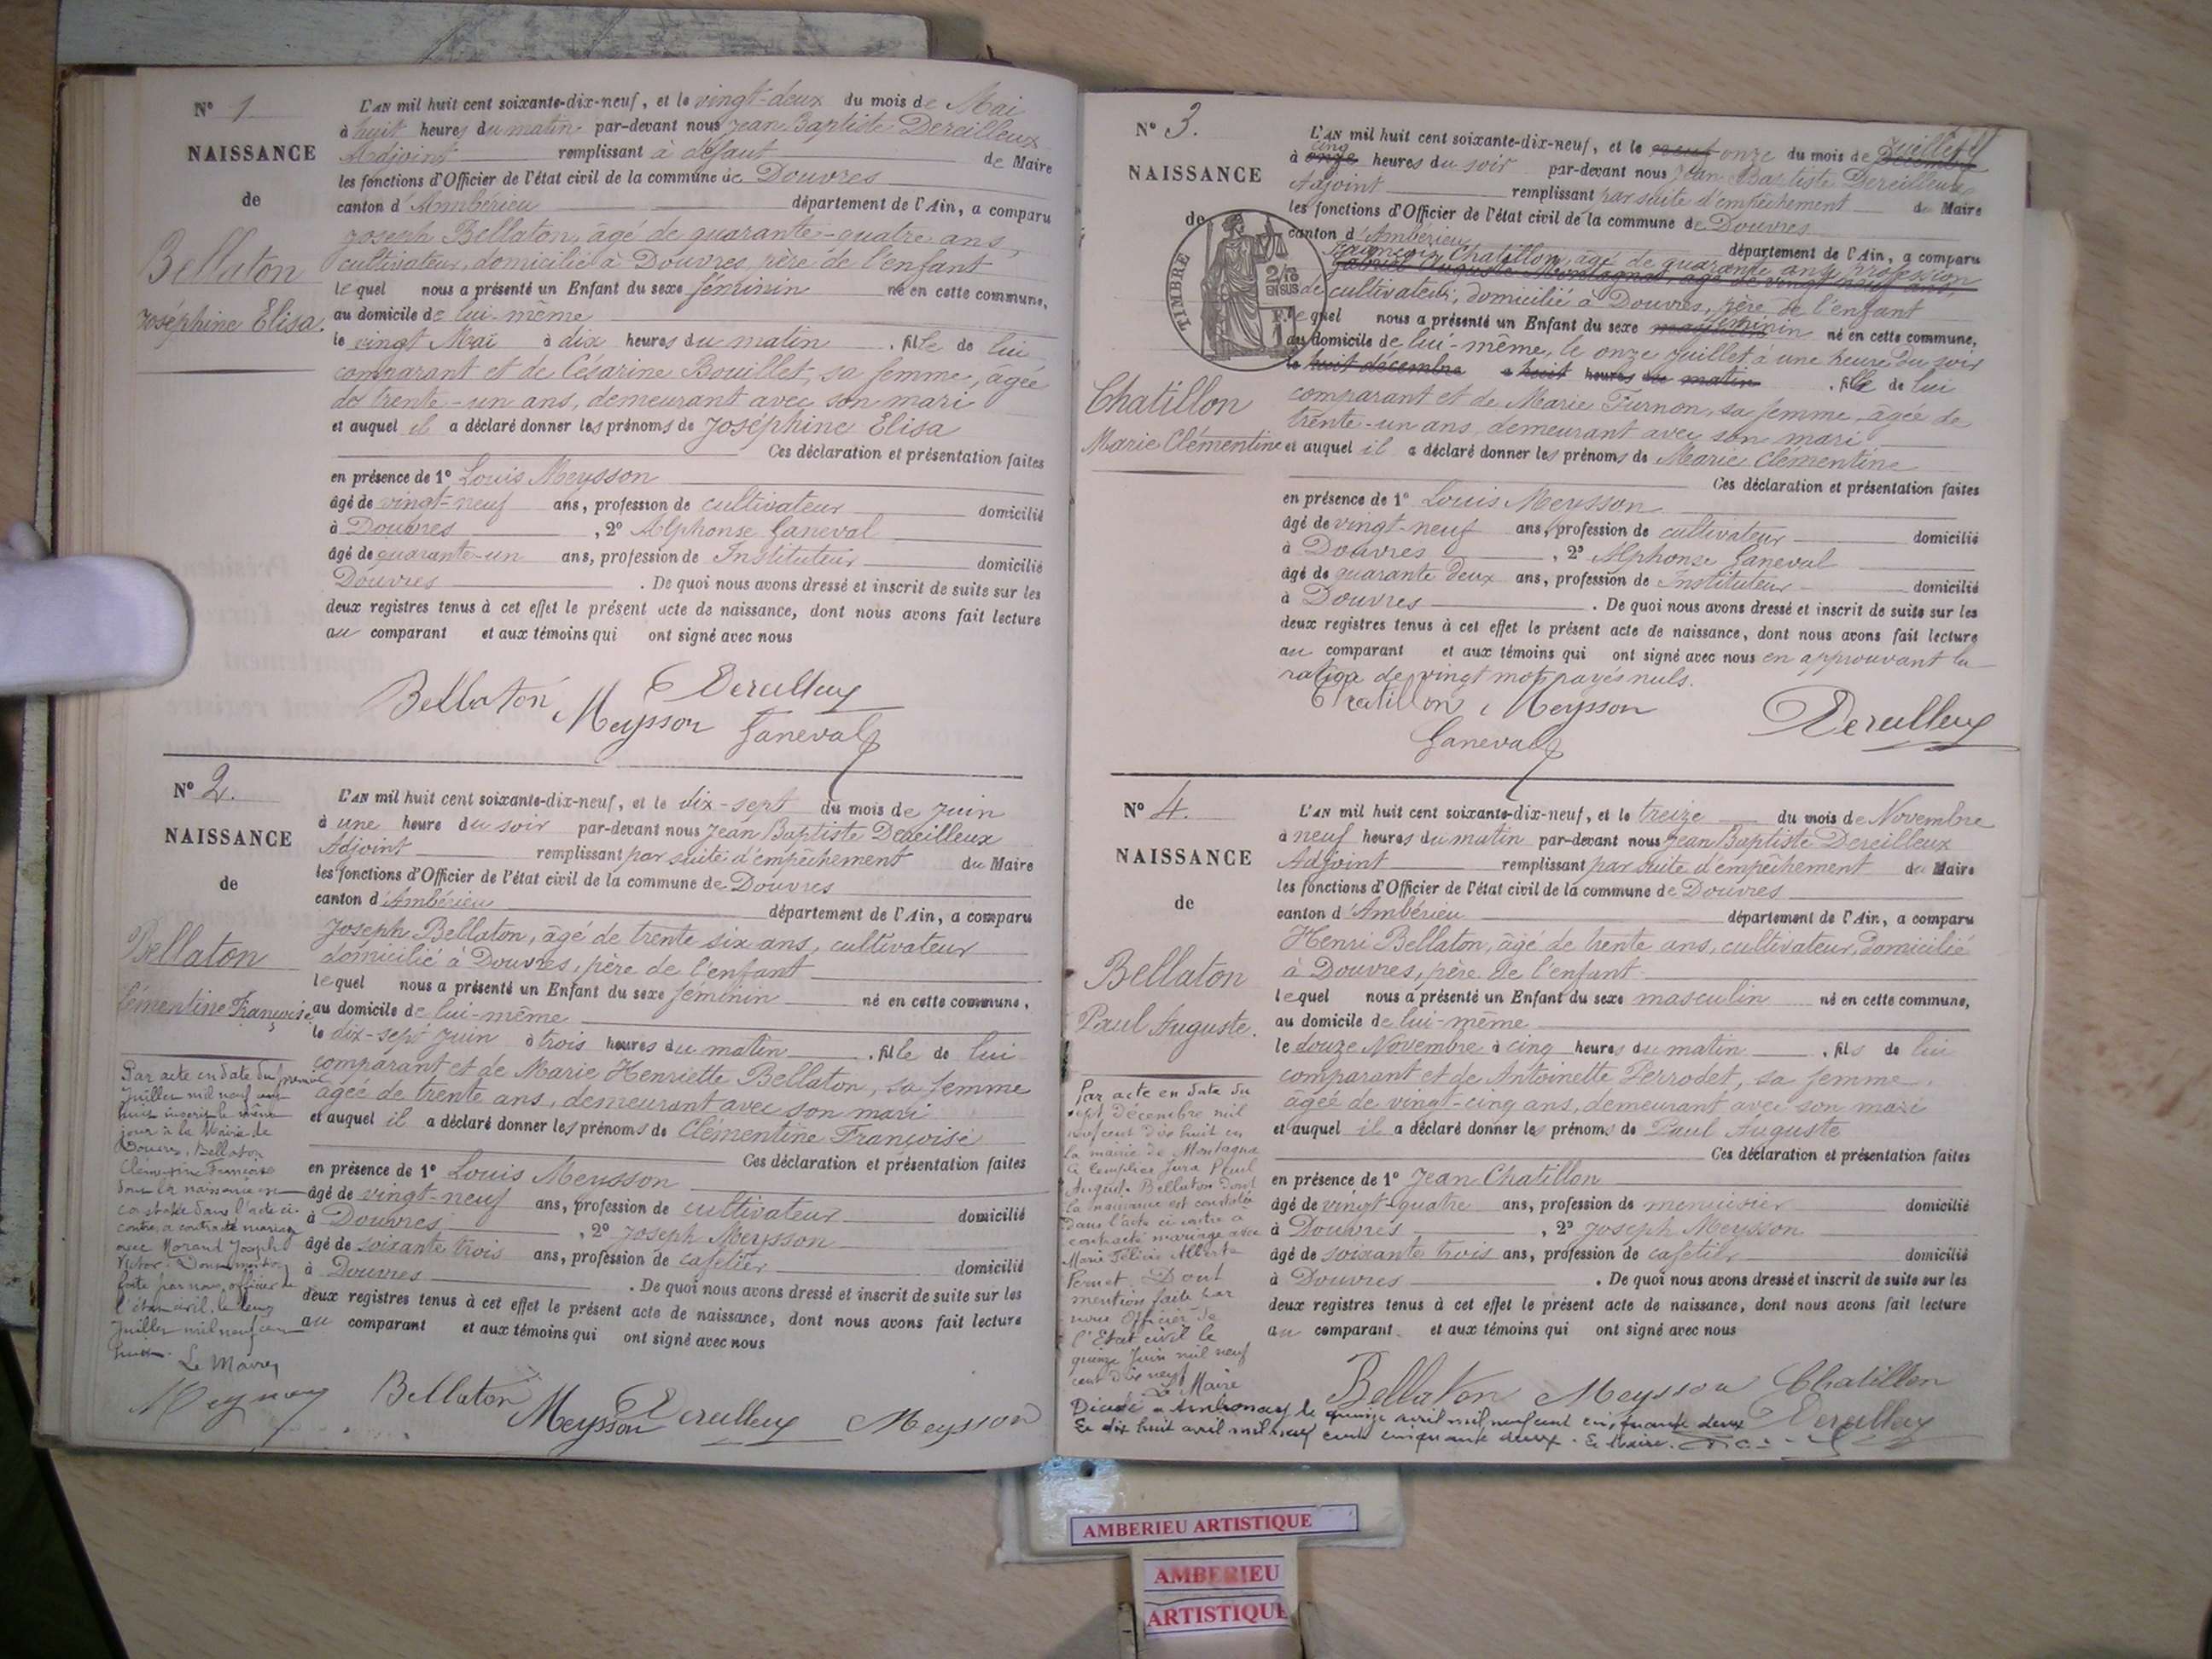 N° 1
NAISSANCE
de
Bellaton
Joséphine Elisa.
L'AN mil huit cent soixante-dix-neuf, et le vingt-deux du mois de Mai
à huit heures du matin par-devant nous Jean Baptiste Dereilleux
Adjoint remplissant à défaut de Maire
les fonctions d'Officier de l'état civil de la commune de Douvres
canton d'Ambérieu département de l'Ain, a comparu
Joseph Bellaton, âgé de quarante-quatre ans,
cultivateur, domicilié à Douvres, père de l'enfant
lequel nous a présenté un Enfant du sexe féminin né en cette commune,
au domicile de lui-même
le vingt Mai à dix heures du matin, fille de lui
comparant et de Césarine Bouillet, sa femme, âgée
de trente-un ans, demeurant avec son mari
et auquel il a déclaré donner les prénoms de Joséphine Elisa
Ces déclaration et présentation faites
en présence de 1° Louis Meysson
âgé de vingt-neuf ans, profession de cultivateur domicilié
à Douvres, 2° Alphonse Ganeval
âgé de quarante-un ans, profession de Instituteur domicilié
Douvres. De quoi nous avons dressé et inscrit de suite sur les
deux registres tenus à cet effet le présent acte de naissance, dont nous avons fait lecture
au comparant et aux témoins qui ont signé avec nous
Bellaton Meysson Dereilleux
Ganeval
N° 2.
NAISSANCE
de
Bellaton
Clémentine Françoise
L'AN mil huit cent soixante-dix-neuf, et le dix-sept du mois de Juin
à une heure du soir par-devant nous Jean Baptiste Dereilleux
Adjoint remplissant par suite d'empêchement du Maire
les fonctions d'Officier de l'état civil de la commune de Douvres
canton d'Ambérieu département de l'Ain, a comparu
Joseph Bellaton, âgé de trente six ans, cultivateur
domicilié à Douvres, père de l'enfant
lequel nous a présenté un Enfant du sexe féminin né en cette commune,
au domicile de lui-même
le dix-sept Juin à trois heures du matin, fille de lui
comparant et de Marie Henriette Bellaton, sa femme
âgée de trente ans, demeurant avec son mari
et auquel il a déclaré donner les prénoms de Clémentine Françoise
Ces déclaration et présentation faites
en présence de 1° Louis Meysson
âgé de vingt-neuf ans, profession de cultivateur domicilié
à Douvres, 2° Joseph Meysson
âgé de soixante trois ans, profession de cafetier domicilié
à Douvres. De quoi nous avons dressé et inscrit de suite sur les
deux registres tenus à cet effet le présent acte de naissance, dont nous avons fait lecture
au comparant et aux témoins qui ont signé avec nous
Par acte en date du premier
juillet mil neuf cent
huit inscrit le même
jour à la Mairie de
Douvres, Bellaton
Clémentine Françoise
dont la naissance est
constatée dans l'acte ci-
contre, a contracté mariage
avec Morand Joseph
Victor. Dont mention
faite par nous, officier de
l'état civil, le
Juillet mil neuf cent
huit.
Le Maire
Bellaton Meysson Dereilleux Meysson
N° 3.
NAISSANCE
de
TIMBRE
2/10 EN SUS
Chatillon
Marie Clémentine
L'AN mil huit cent soixante-dix-neuf, et le neuf onze du mois de Décembre Juillet
à onze cinq heures du soir par-devant nous Jean Baptiste Dereilleux
Adjoint remplissant par suite d'empêchement du Maire
les fonctions d'Officier de l'état civil de la commune de Douvres
canton d'Ambérieu département de l'Ain, a comparu
François Chatillon, âgé de quarante ans profession
de cultivateur, domicilié à Douvres, père de l'enfant
lequel nous a présenté un Enfant du sexe masculin féminin né en cette commune,
au domicile de lui-même, le onze juillet à une heure du soir
le huit décembre à huit heures du matin, fille de lui
comparant et de Marie Furnon, sa femme, âgée de
trente-un ans, demeurant avec son mari
et auquel il a déclaré donner les prénoms de Marie Clémentine
Ces déclaration et présentation faites
en présence de 1° Louis Meysson
âgé de vingt-neuf ans, profession de cultivateur domicilié
à Douvres, 2° Alphonse Ganeval
âgé de quarante deux ans, profession de Instituteur domicilié
à Douvres. De quoi nous avons dressé et inscrit de suite sur les
deux registres tenus à cet effet le présent acte de naissance, dont nous avons fait lecture
au comparant et aux témoins qui ont signé avec nous en approuvant la
de vingt mots rayés nuls.
Chatillon Meysson Dereilleux
Ganeval
N° 4.
NAISSANCE
de
Bellaton
Paul Auguste.
L'AN mil huit cent soixante-dix-neuf, et le treize du mois de Novembre
à neuf heures du matin par-devant nous Jean Baptiste Dereilleux
Adjoint remplissant par suite d'empêchement du Maire
les fonctions d'Officier de l'état civil de la commune de Douvres
canton d'Ambérieu département de l'Ain, a comparu
Henri Bellaton, âgé de trente ans, cultivateur, domicilié
à Douvres, père de l'enfant
lequel nous a présenté un Enfant du sexe masculin né en cette commune,
au domicile de lui-même
le douze Novembre à cinq heures du matin, fils de lui
comparant et de Antoinette Perrodet, sa femme,
âgée de vingt-cinq ans, demeurant avec son mari
et auquel il a déclaré donner les prénoms de Paul Auguste
Ces déclaration et présentation faites
en présence de 1° Jean Chatillon
âgé de vingt-quatre ans, profession de menuisier domicilié
à Douvres, 2° Joseph Meysson
âgé de soixante trois ans, profession de cafetier domicilié
à Douvres. De quoi nous avons dressé et inscrit de suite sur les
deux registres tenus à cet effet le présent acte de naissance, dont nous avons fait lecture
au comparant et aux témoins qui ont signé avec nous
Par acte en date du
sept Décembre mil
neuf cent dix huit en
la mairie de Montagna
le Templier Jura Paul
Auguste Bellaton dont
la naissance est constatée
dans l'acte ci contre a
contracté mariage avec
Marie Félicie Alberte
Dont
mention faite par
nous Officier de
l'Etat civil le
quinze Juin mil neuf
cent dix neuf
Le Maire
Bellaton Meysson Chatillon
Dereilleux
Décédé à Ambronay le quinze avril mil neuf cent cinquante deux
Le dix huit avril mil neuf cent cinquante deux. Le Maire.
AMBERIEU ARTISTIQUE
AMBERIEU
ARTISTIQUE